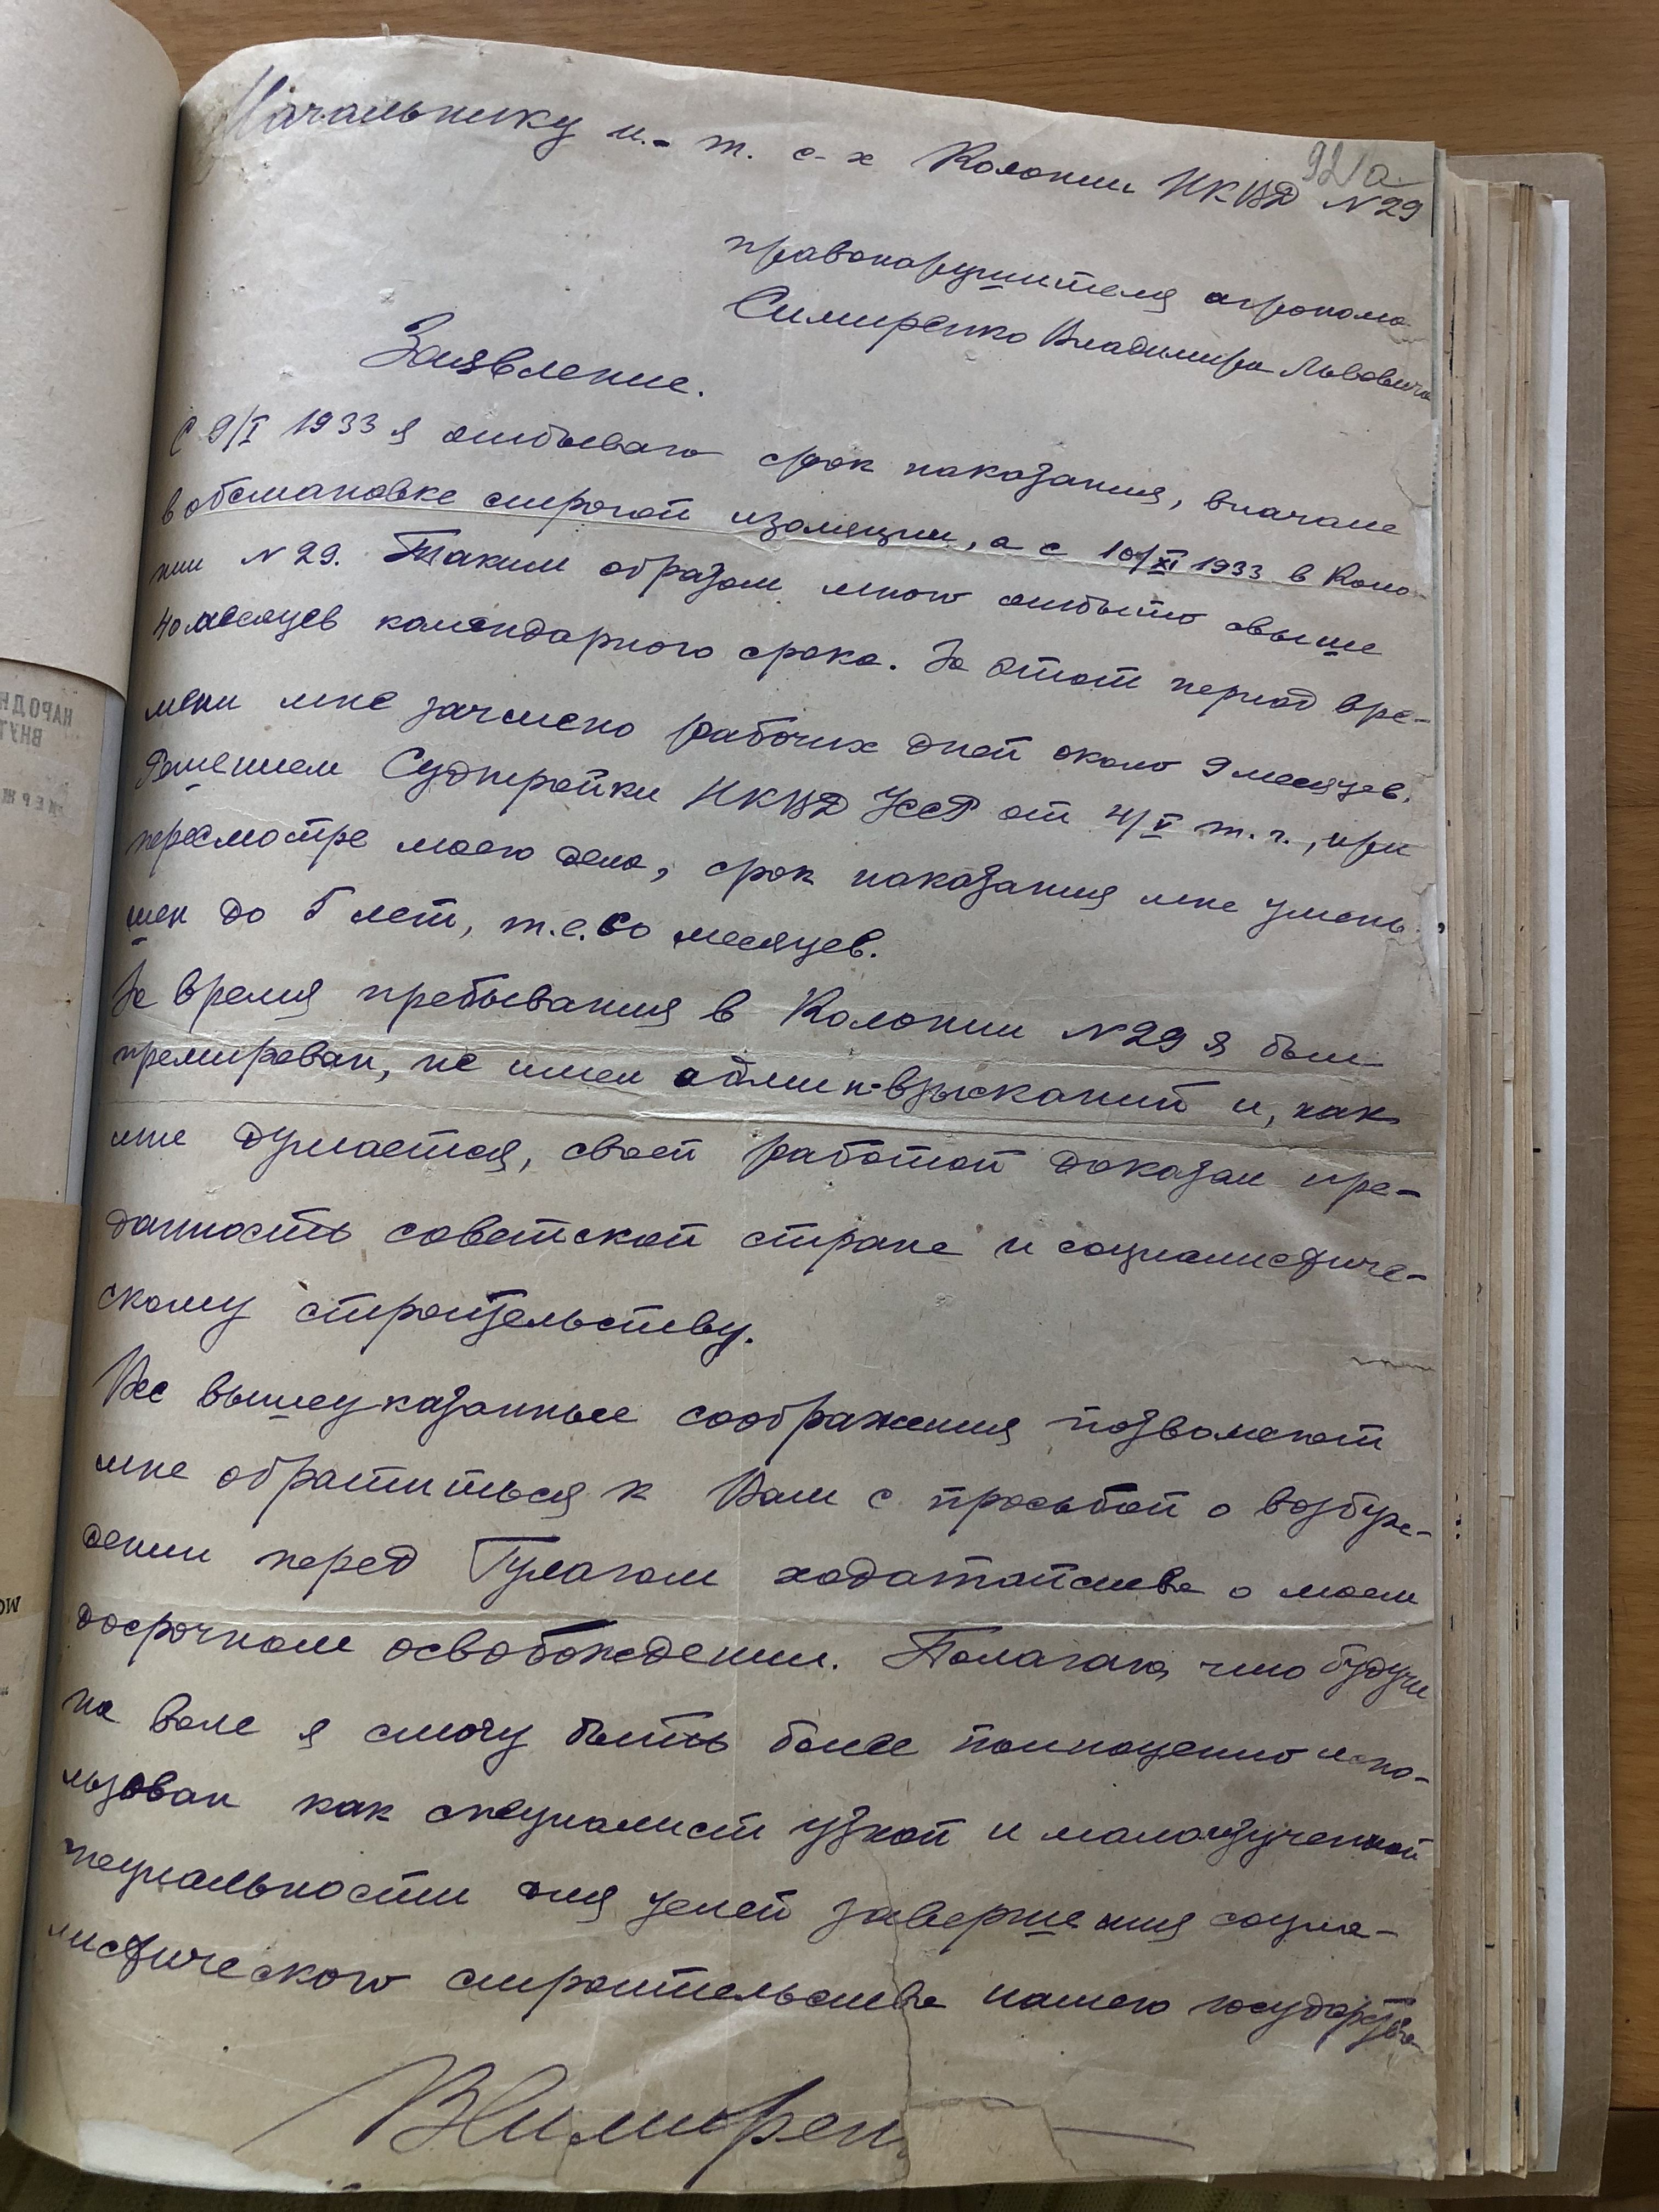 92/а
Начальнику и.-т. с-х Колонии НКВД N 29
правонарушителя агронома
Симиренко Владимира Львовича
Заявление.
С 9/I 1933 я отбываю срок наказания, вначале
в обстановке строгой изоляции, а с 10/XI 1933 в Коло-
нии N 29. Таким образом мною отбыто свыше
40 месяцев календарного срока. За этот период вре-
мени мне зачтено рабочих дней около 9 месяцев.
Решением Судтройки НКВД УССР от 4/V т.г., при
пересмотре моего дела, срок наказания мне умень-
шен до 5 лет, т.е. 60 месяцев.
За время пребывания в Колонии N 29 я был
премирован, не имел админ-взысканий и, как
мне думается, своей работой доказал пре-
данность советской стране и социалистиче-
скому строительству.
Все вышеуказанные соображения позволяют
мне обратиться к Вам с просьбой о возбуж-
дении перед Гулагом ходатайства о моем
досрочном освобождении. Полагаю, что будучи
на воле я смогу быть более полноценно испо-
льзован как специалист узкой и малоизученной
специальности для целей завершения социа-
листического строительства нашего государства
ВСимирен
НАРОДН
ВНУТ